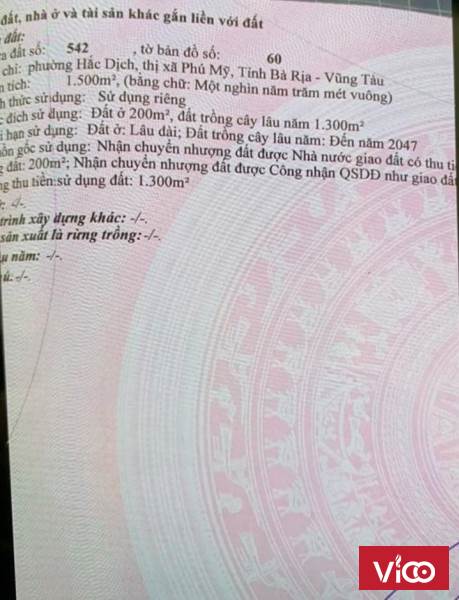 đất, nhà ở và tài sản khác gắn liền với đất
đất:
a đất số: 542 , tờ bản đồ số: 60
chỉ: phường Hắc Dịch, thị xã Phú Mỹ, Tỉnh Bà Rịa - Vũng Tàu
n tích: 1.500m², (bằng chữ: Một nghìn năm trăm mét vuông)
h thức sử dụng: Sử dụng riêng
c đích sử dụng: Đất ở 200m², đất trồng cây lâu năm 1.300m²
i hạn sử dụng: Đất ở: Lâu dài; Đất trồng cây lâu năm: Đến năm 2047
uồn gốc sử dụng: Nhận chuyển nhượng đất được Nhà nước giao đất có thu ti
g đất: 200m²; Nhận chuyển nhượng đất được Công nhận QSDĐ như giao đất
ng thu tiền sử dụng đất: 1.300m²
: -/-.
trình xây dựng khác: -/-.
sản xuất là rừng trồng: -/-.
u năm: -/-.
ú: -/-.
ViCO